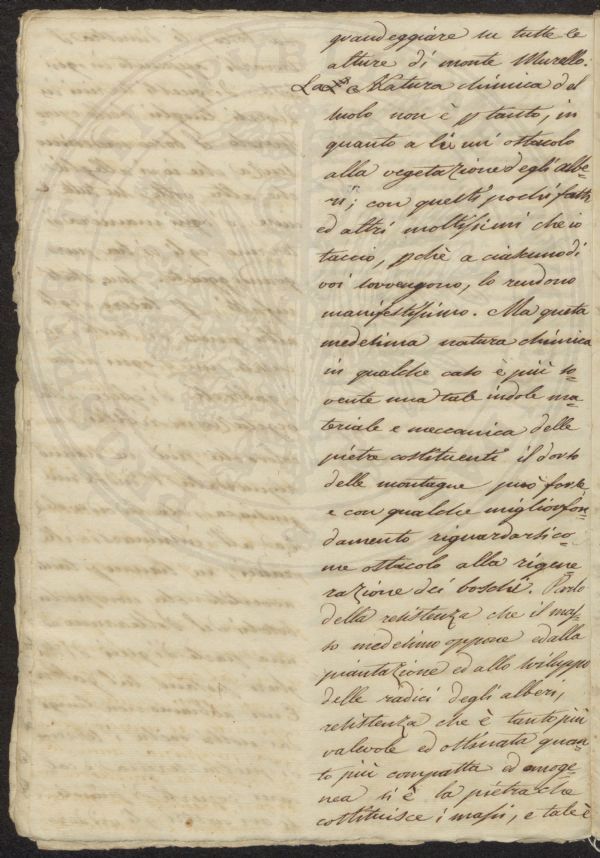 grandeggiare su tutte le
alture di monte Murello.
La Natura chimica del
suolo non è p tanto, in
quanto a se un ostacolo
alla vegetazione degli albe-
ri; con questi pochi fatti
ed altri moltissimi che io
taccio, pchè a ciascuno di
voi sovvengono, lo rendono
manifestissimo. Ma questa
medesima natura chimica
in qualche caso è più so-
vente una tale indole ma-
teriale e meccanica delle
pietre costituenti il dorso
delle montagne può forse
e con qualche miglior fon-
damento riguardarsi co-
me ostacolo alla rigene
razione dei boschi. Parlo
della resistenza che il mas-
so medesimo oppone ed alla
piantazione ed allo sviluppo
delle radici degli alberi,
resistenza che è tanto più
valevole ed ostinata quan-
to più compatta ed omoge-
nea si è la pietra che
costituisce i massi, e tale è